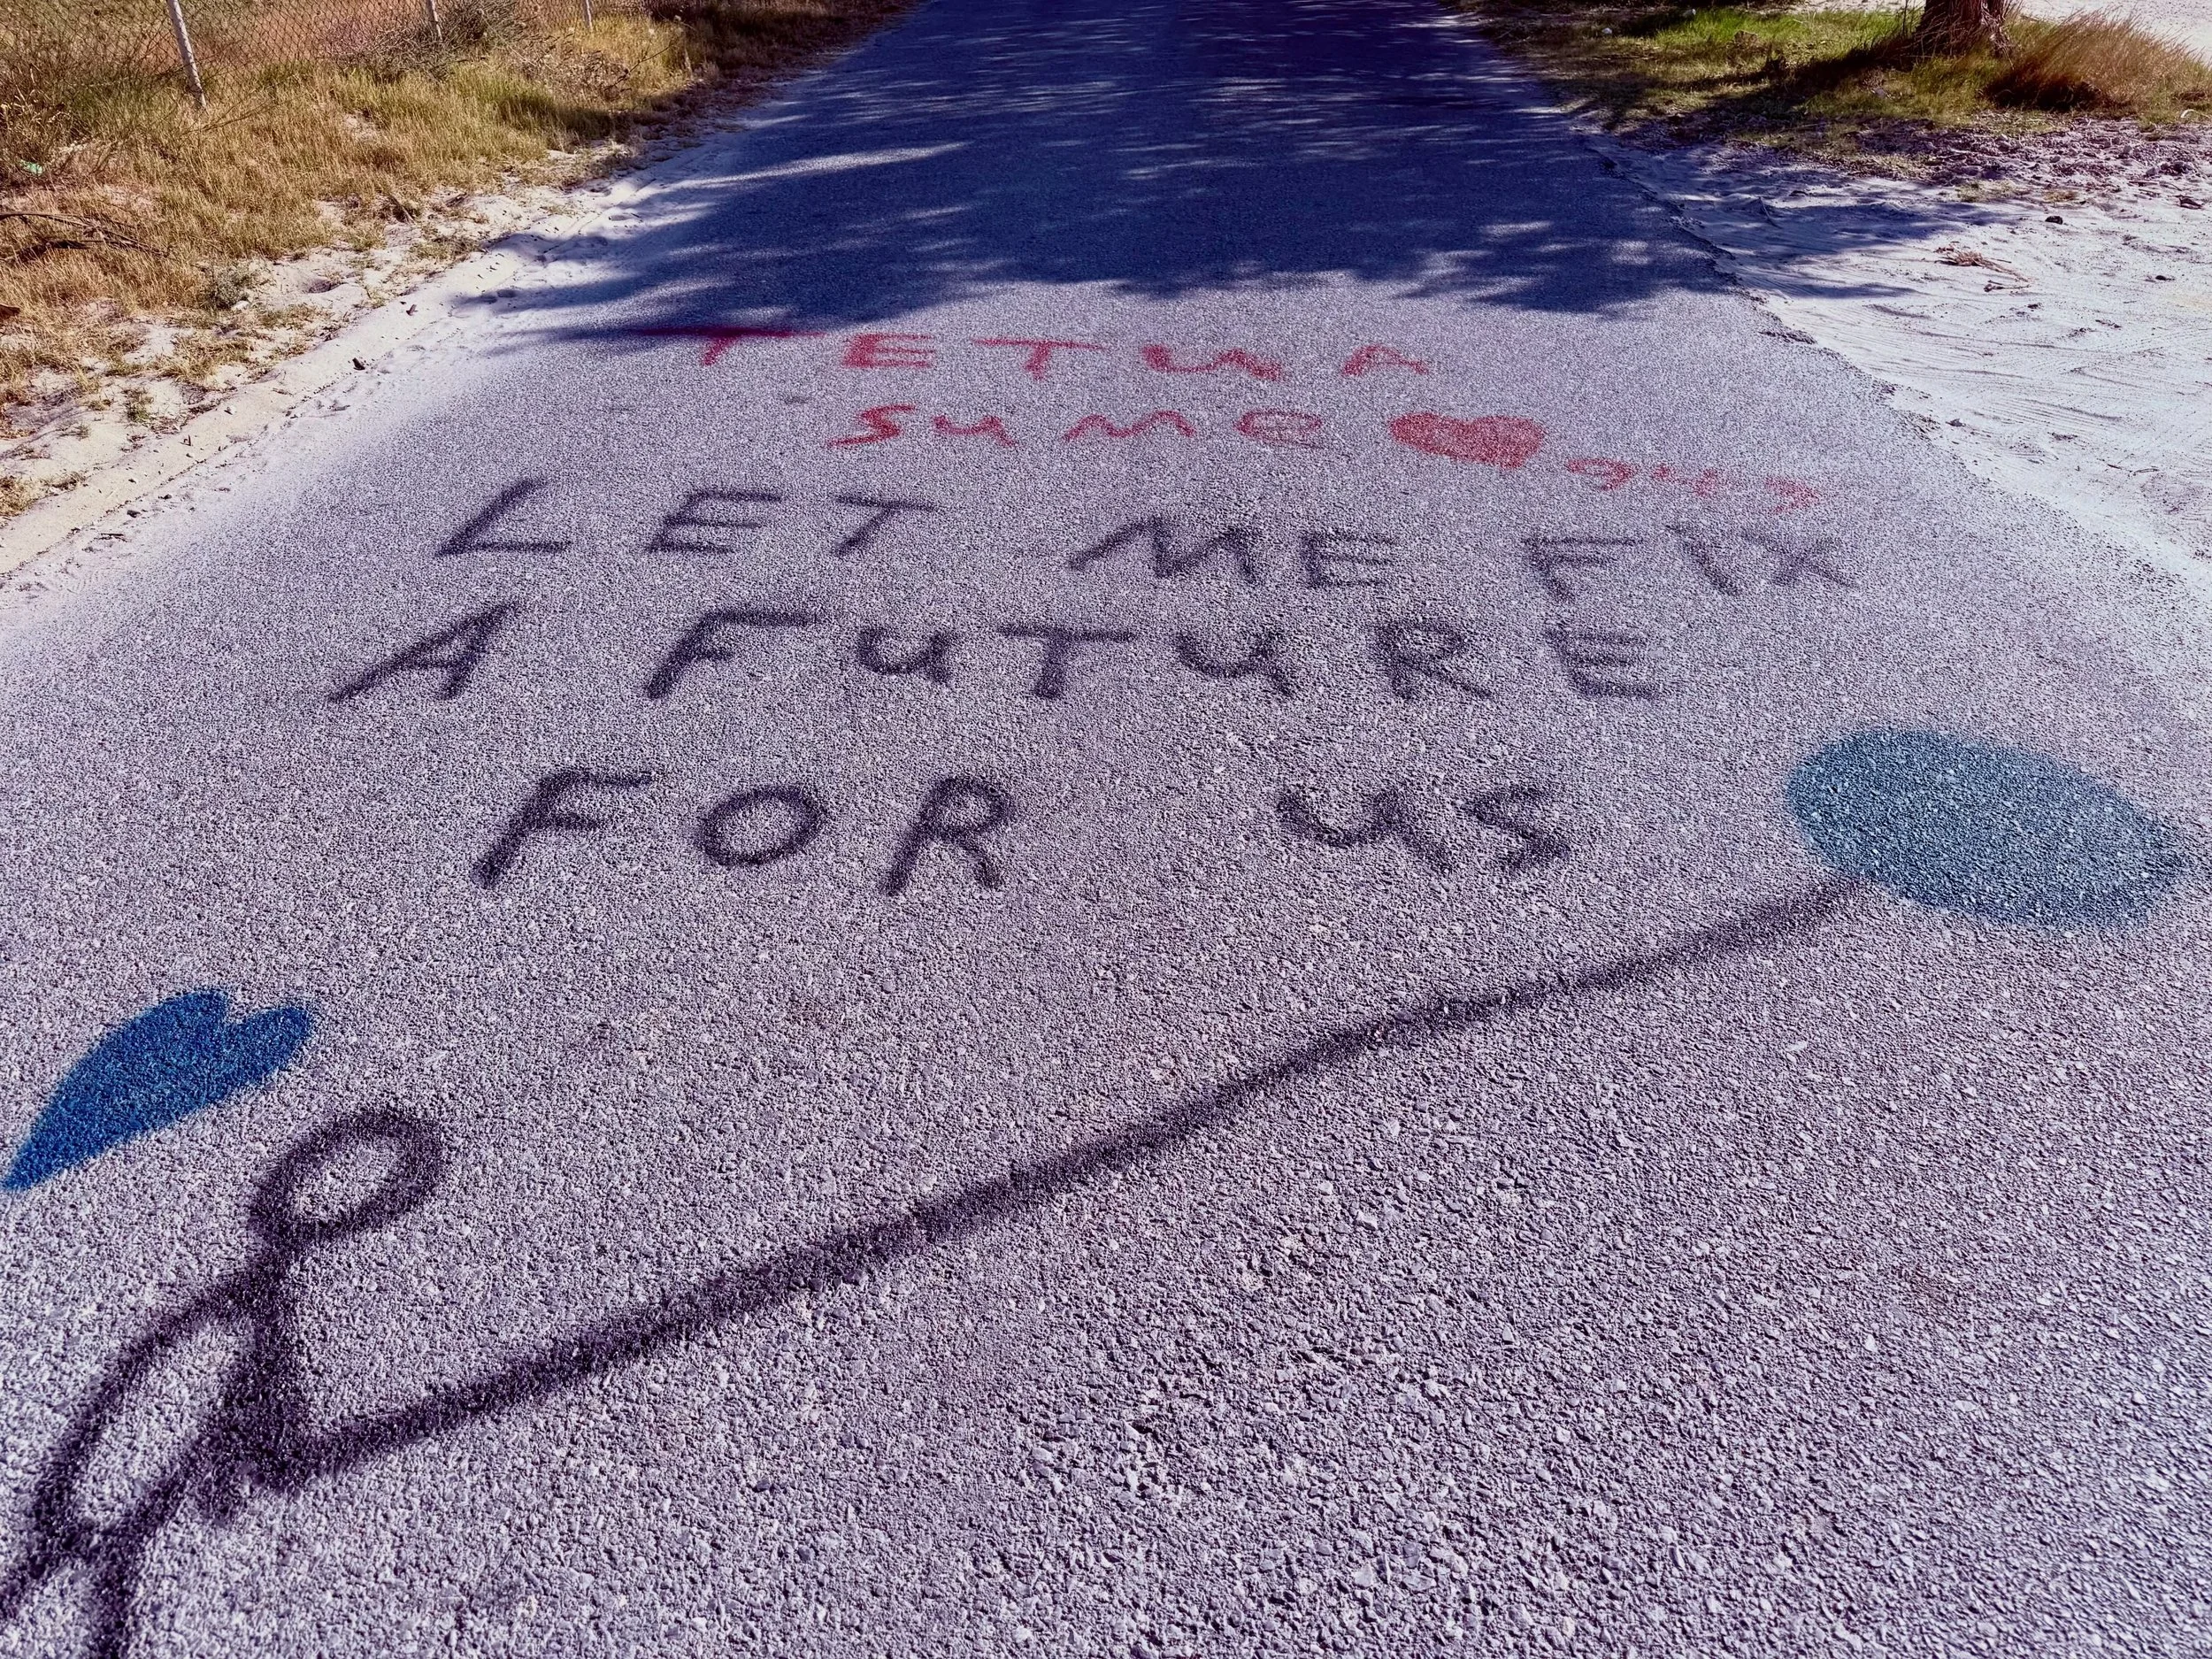 TETWA
SUME
LET ME FIX
A FUTURE
FOR US